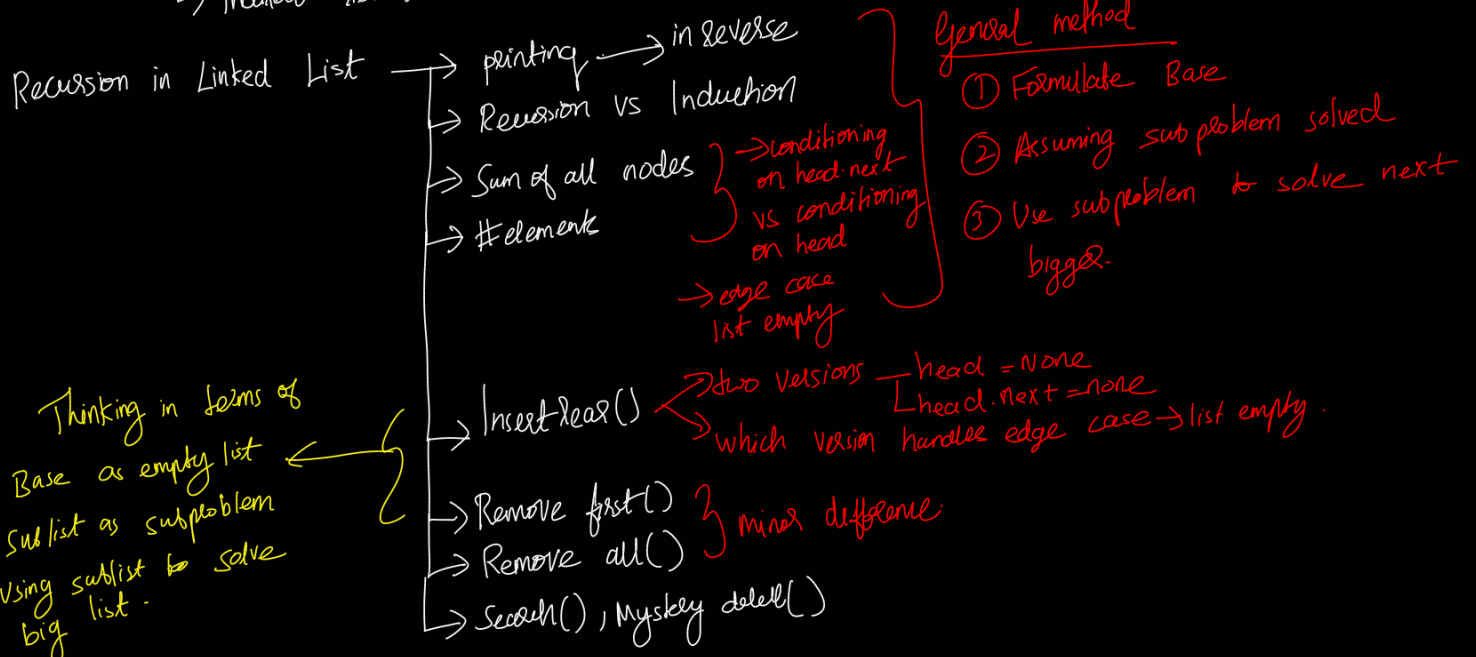 Recursion in Linked List
printing → in reverse
Recursion vs Induction
Sum of all nodes
#elements
→ conditioning
on head.next
vs conditioning
on head
→ edge case
list empty
General method
① Formulate Base
② Assuming subproblem solved
③ Use subproblem to solve next
bigger.
InsertRear()
two versions head = None
head.next = none
which version handles edge case → list empty.
Thinking in terms of
Base as empty list
sublist as subproblem
using sublist to solve
big list.
Remove first()
Remove all()
minor difference
Search(), Mystery